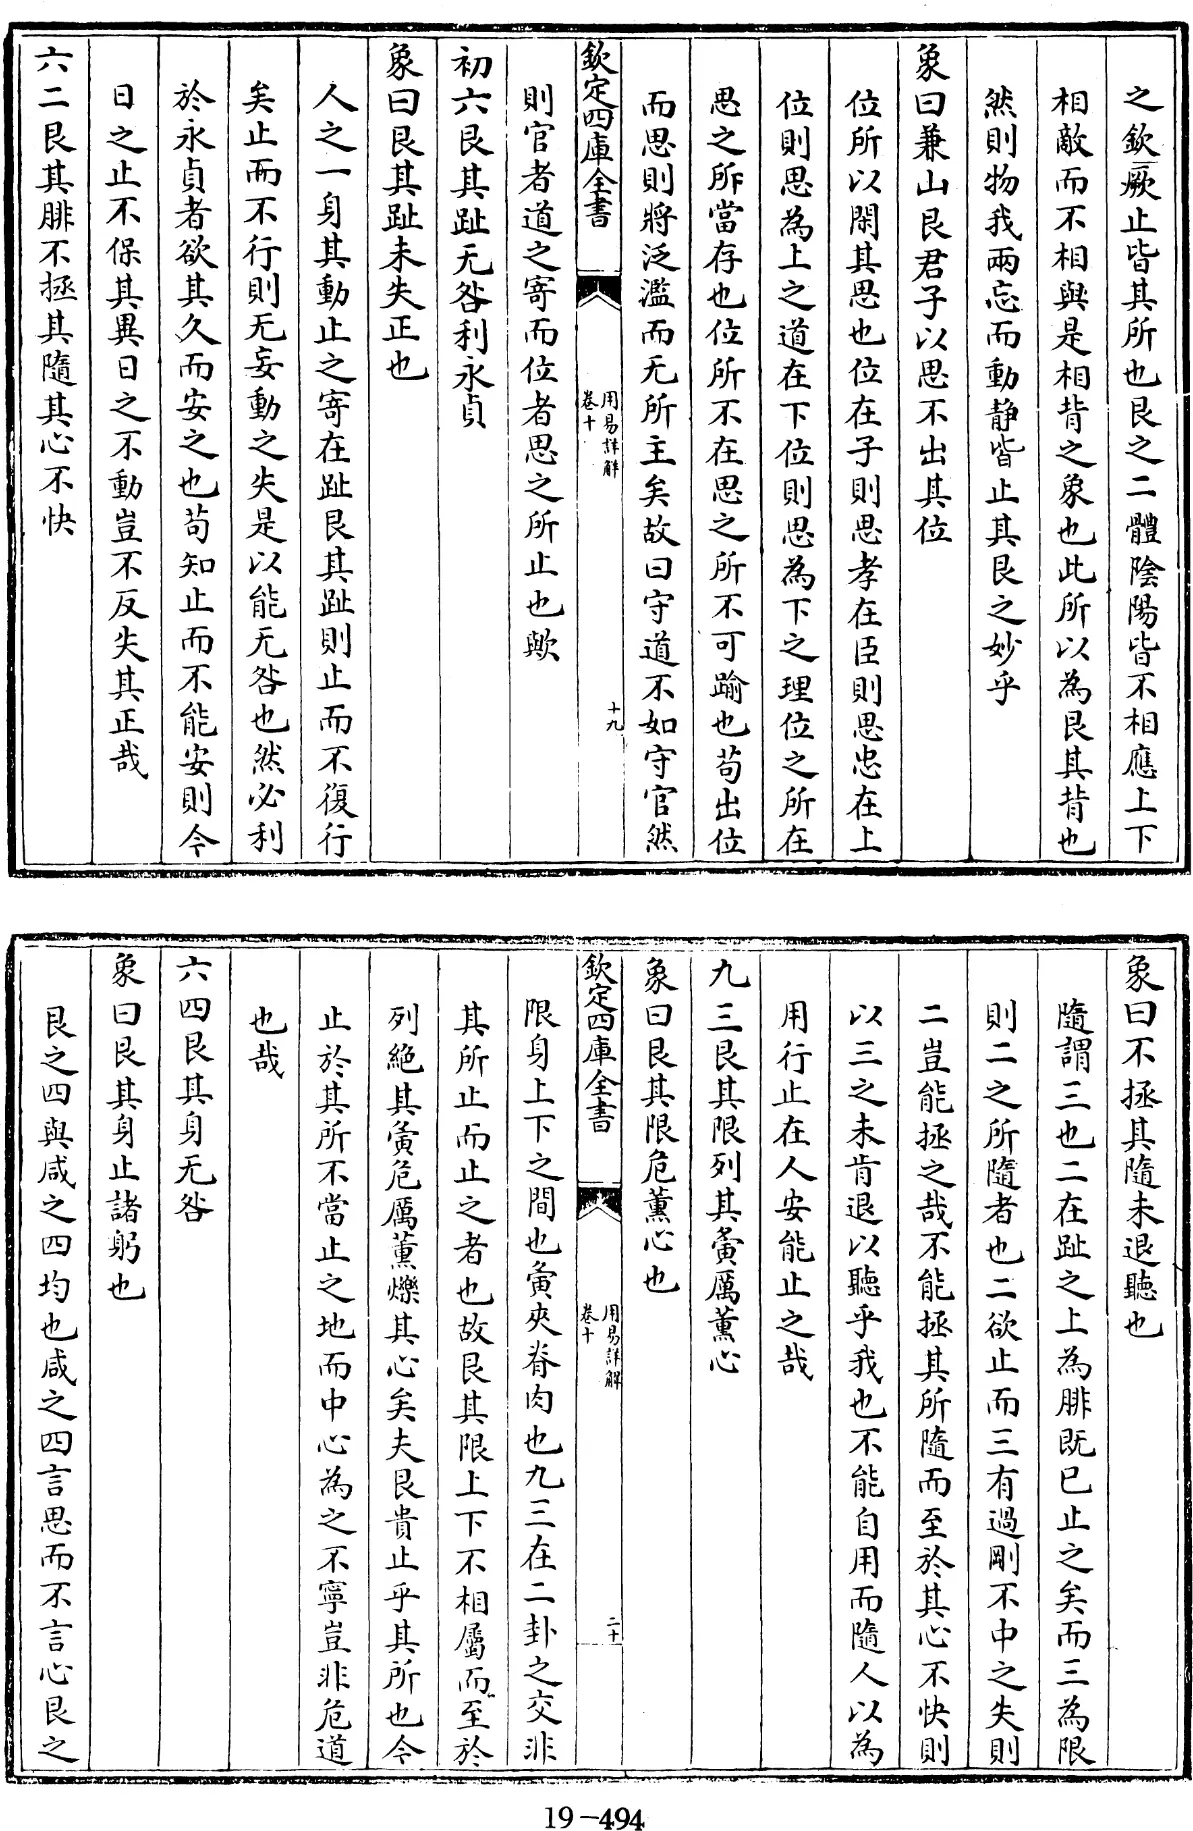 之欽厥止皆其所也艮之二體陰陽皆不相應上下
相敵而不相與是相背之象也此所以為艮其背也
然則物我兩忘而動靜皆止其艮之妙乎
象曰兼山艮君子以思不出其位
位所以閑其思也位在子則思孝在臣則思忠在上
位則思為上之道在下位則思為下之理位之所在
思之所當存也位所不在思之所不可踰也苟出位
而思則將泛濫而无所主矣故曰守道不如守官然
欽定四庫全書
用易詳解
卷十
十九
則官者道之寄而位者思之所止也歟
初六艮其趾无咎利永貞
象曰艮其趾未失正也
人之一身其動止之寄在趾艮其趾則止而不復行
矣止而不行則无妄動之失是以能无咎也然必利
於永貞者欲其久而安之也苟知止而不能安則今
日之止不保其異日之不動豈不反失其正哉
六二艮其腓不拯其隨其心不快
象曰不拯其隨未退聽也
隨謂三也二在趾之上為腓既已止之矣而三為限
則二之所隨者也二欲止而三有過剛不中之失則
二豈能拯之哉不能拯其所隨而至於其心不快則
以三之未肯退以聽乎我也不能自用而隨人以為
用行止在人安能止之哉
九三艮其限列其夤厲薰心
象曰艮其限危薰心也
欽定四庫全書
用易詳解
卷十
二十
限身上下之間也夤夾脊肉也九三在二卦之交非
其所止而止之者也故艮其限上下不相屬而至於
列絕其夤危厲薰爍其心矣夫艮貴止乎其所也今
止於其所不當止之地而中心為之不寧豈非危道
也哉
六四艮其身无咎
象曰艮其身止諸躬也
艮之四與咸之四均也咸之四言思而不言心艮之
19-494